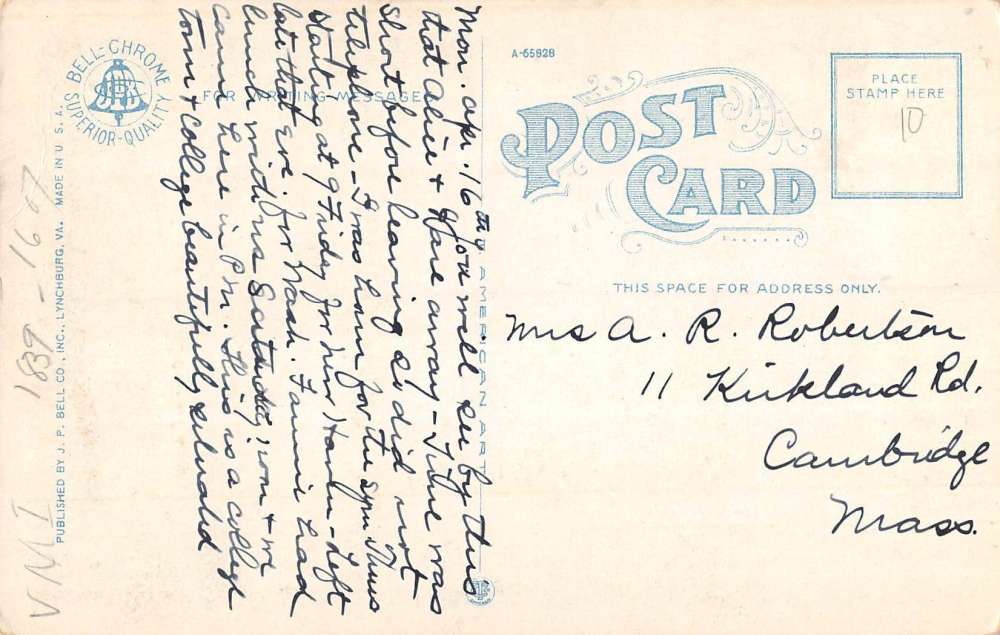 Mon. Apr. 16th You will see by this
that Alice & I are away – Time was
short before leaving so did not
telephone – I was home for the spn Thurs
starting at 9 Friday for New Haven – Left
late that eve. for Wash. Fannie had
lunch with us Saturday, noon & we
came here in P.M. This is a college
town & college beautifully situated
FOR WRITING MESSAGES
BELL-CHROME
SUPERIOR-QUALITY
PUBLISHED BY J. P. BELL CO., INC., LYNCHBURG, VA. MADE IN U. S. A.
VMI 1839 - 16
AMERICAN ART
A-65828
POST
CARD
PLACE
STAMP HERE
10
THIS SPACE FOR ADDRESS ONLY.
Mrs A. R. Robertson
11 Kirkland Rd,
Cambridge
Mass.